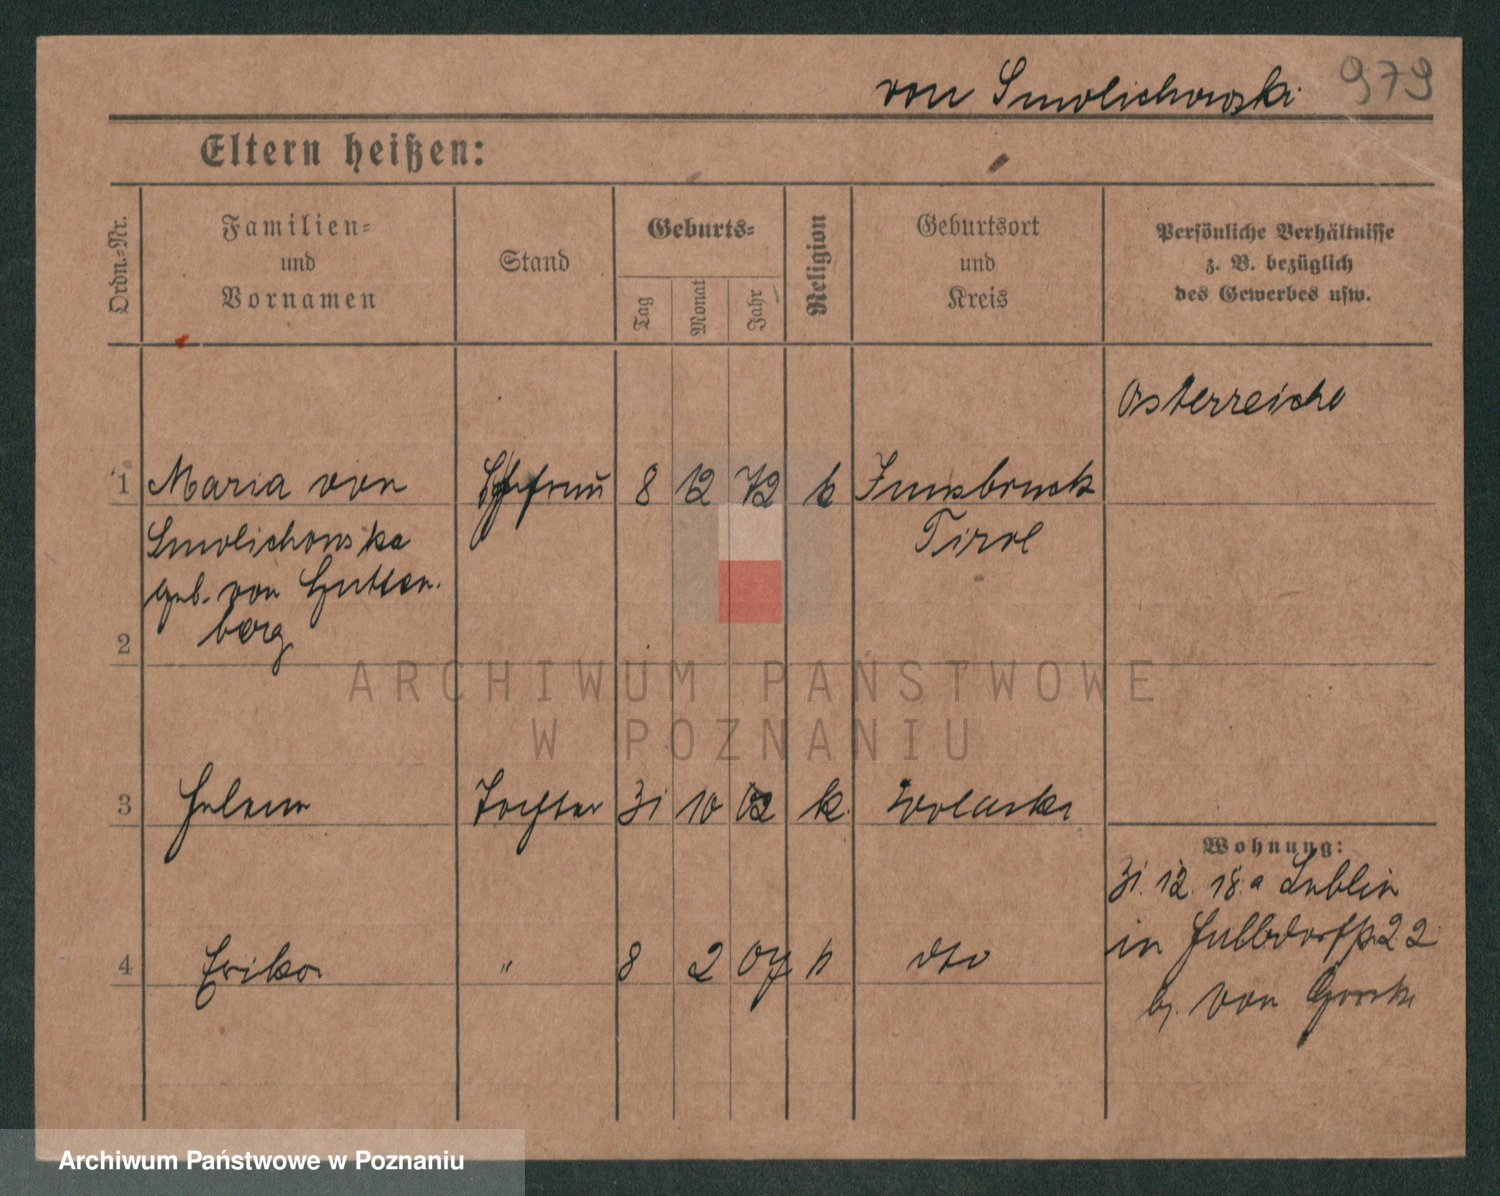 von Smolichowski 979
Eltern heißen:
Ordn.=Nr.
Familien=
und
Vornamen
Stand
Geburts=
Tag
Monat
Jahr
Religion
Geburtsort
und
Kreis
Persönliche Verhältnisse
z. B. bezüglich
des Gewerbes usw.
Österreiche
1 Maria von Ehefrau 8 12 72 k Innsbruck
Smolichowska Tirol
geb. von Gutten
2 berg
ARCHIWUM PAŃSTWOWE
W POZNANIU
3 Helene Tochter 31 10 02 k.
Wohnung:
31. 12. 18. a Lublin
in 22
4 Erika " 8 2 07 k dto
b. von
Archiwum Państwowe w Poznaniu